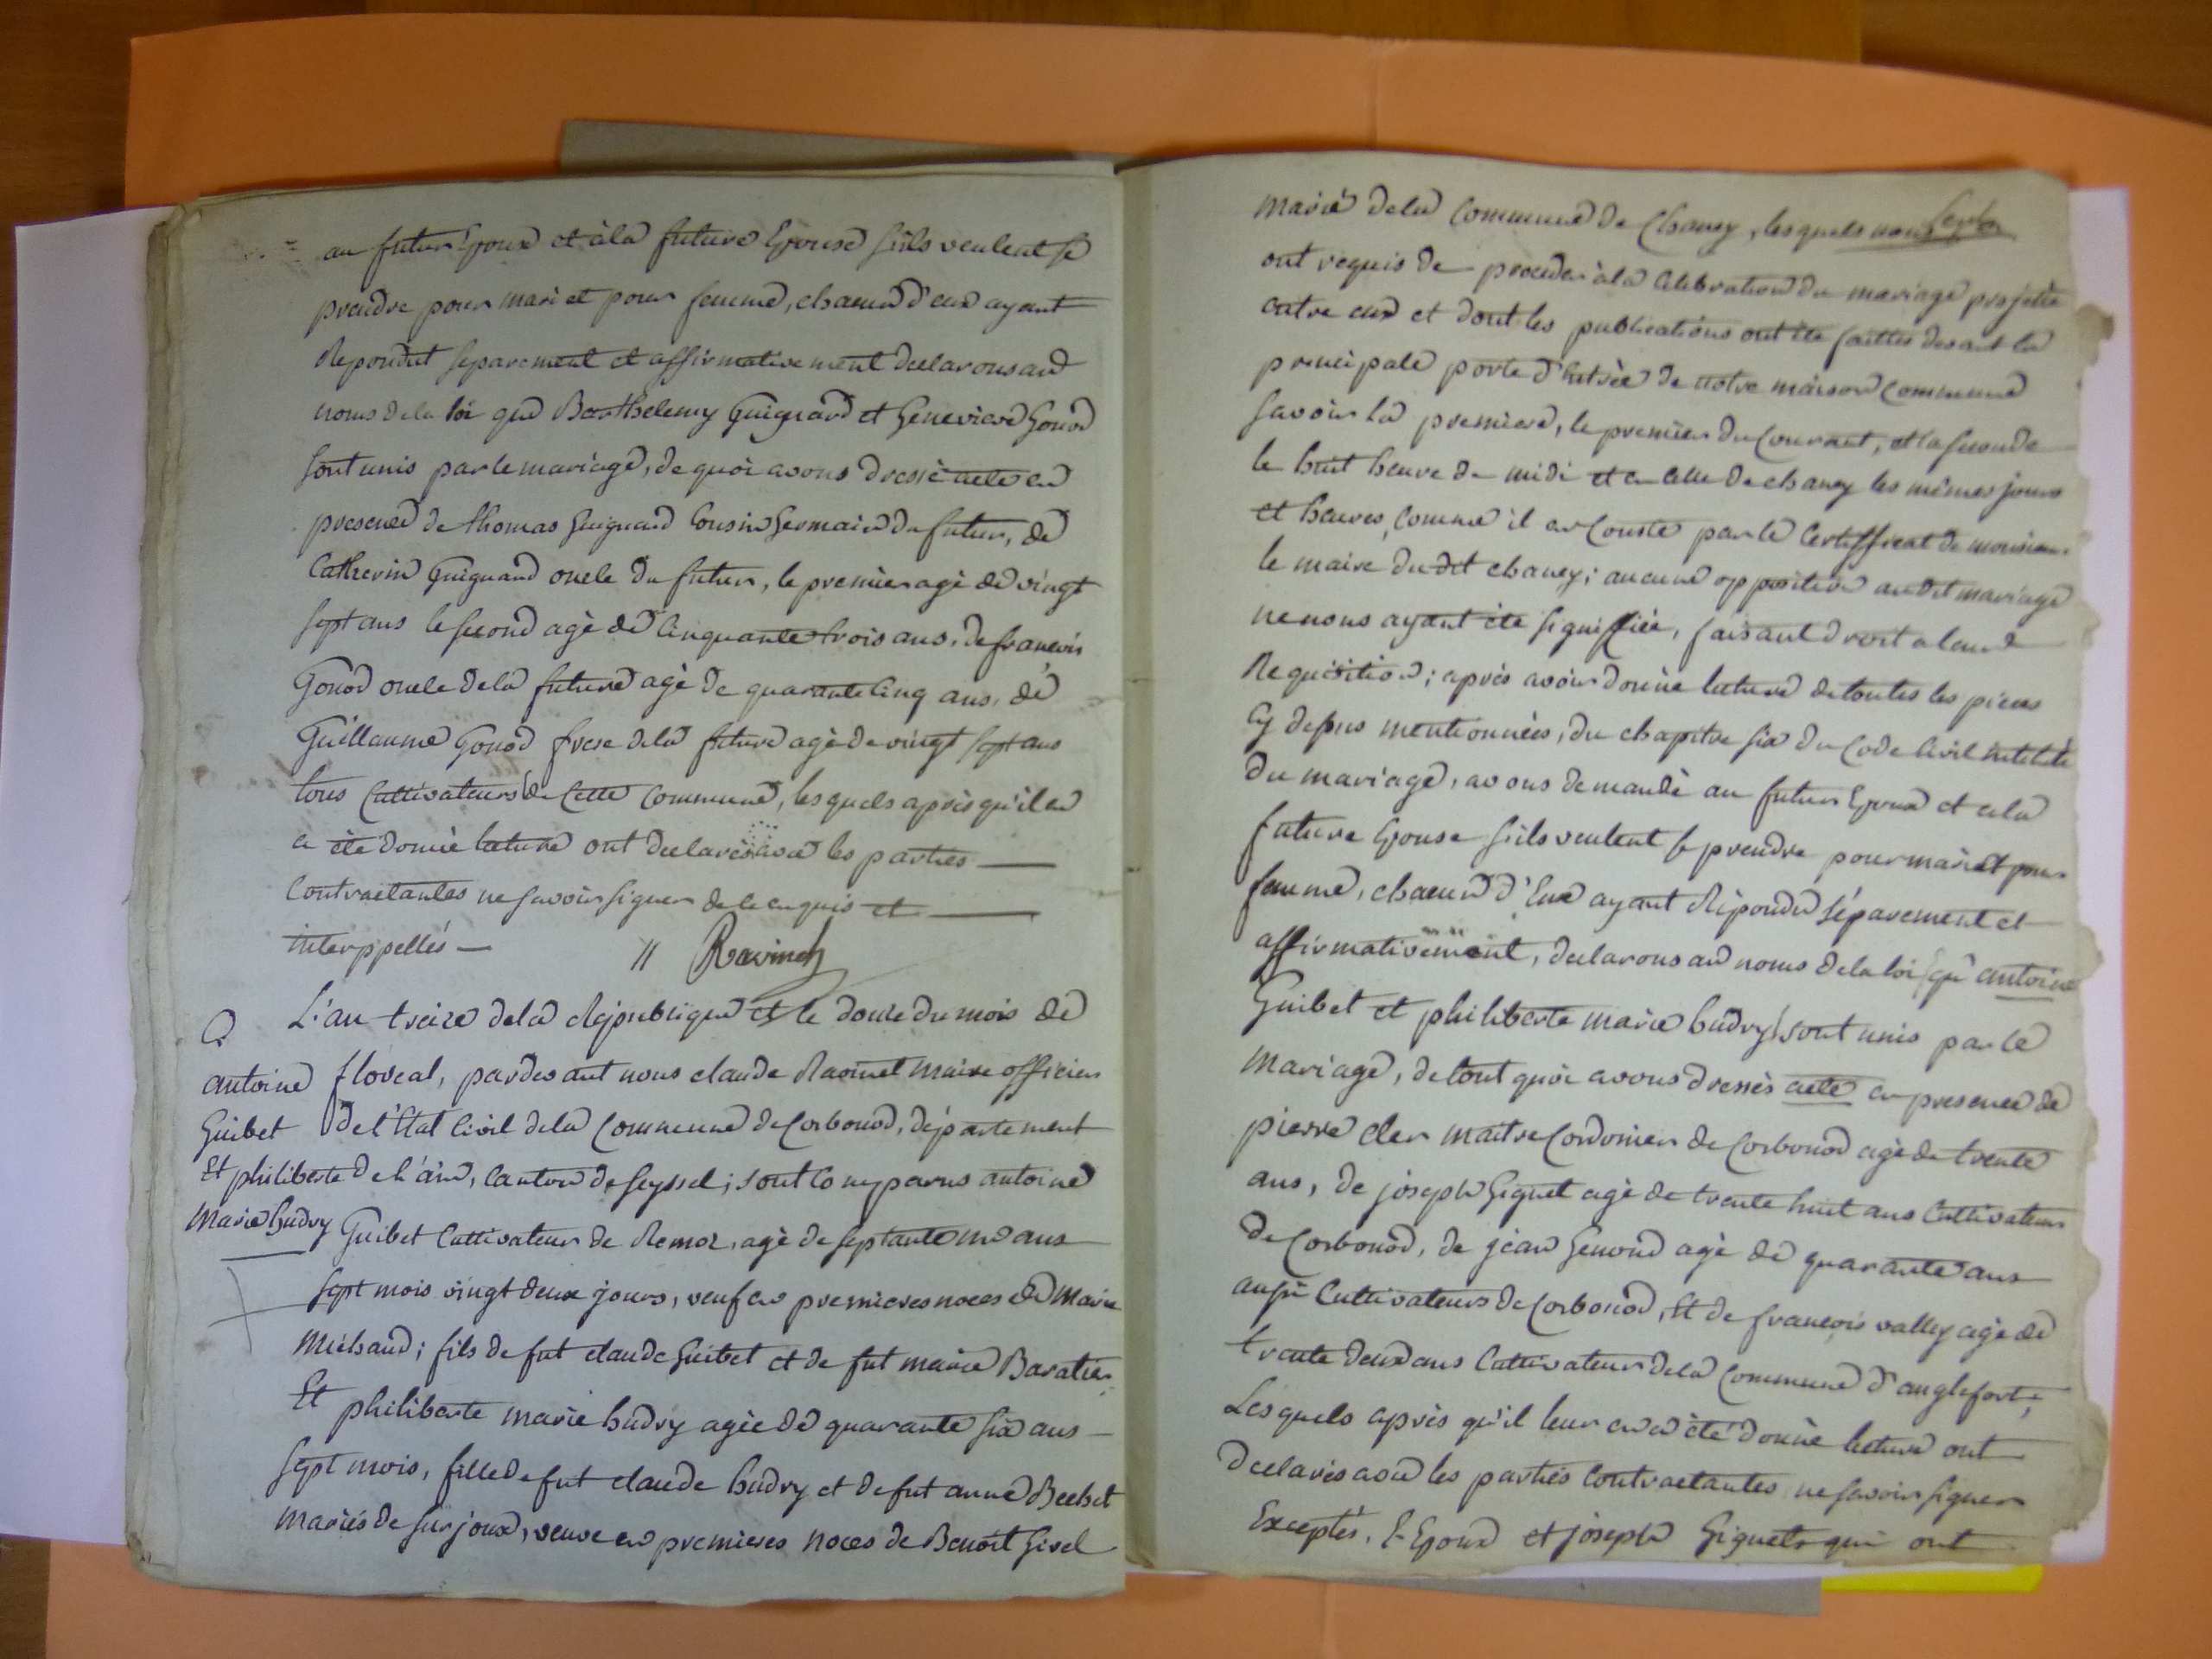 au futur Epoux et à la future Epouse s'ils veulent se
prendre pour mari et pour femme, chacun d'eux ayant
Repondut separement et affirmativement declarons au
noms de la loi que Barthelemy Guignard et Genevieve Gonod
sont unis par le mariage, de quoi avons dressé acte en
presence de thomas Guignard Cousin Germain du futur, de
Catherin Guignard oncle du futur, le premier agé de vingt
sept ans le second agé de Cinquante trois ans, de francois
Gonod oncle de la future agé de quarante Cinq ans, de
Guillaume Gonod frere de la future agé de vingt sept ans
tous Cultivateurs de Cette Commune, lesquels après qu'il en
a été donné lecture ont declarés avec les parties —
Contractantes ne savoir signer de ce enquis et —
interppellés — // Ravinet
L'an treize de la Republique et le douze du mois de
antoine
Guibet
Et philiberte
Marie hudry
floreal, pardevant nous claude Ravinet maire officier
de l'Etat Civil de la Commune de Corbonod, département
de l'ain, Canton de seyssel; sont Comparus antoine
Guibet Cultivateur de Remoz, agé de septante un ans
sept mois vingt deux jours, veuf en premieres noces de Marie
Michaud; fils de fut claude Guibet et de fut marie Baratier
Et philiberte marie hudry agée de quarante six ans —
sept mois, fille de fut claude hudry et de fut anne Bechet
Mariés de surjoux, veuve en premieres noces de Benoit Givel
Marié de la Commune de Chanay, lesquels nous
ont requis de proceder à la Celebration du mariage projetté
entre eux et dont les publications ont été faittes devant la
principale porte d'Entrée de notre maison Commune
savoir la premiere, le premier du Courant, et la seconde
le huit heure de midi et en Celle de chanay les mêmes jours
et heures, comme il en Conste par le Certifficat de monsieur
le maire du dit chanay; aucune opposition au dit mariage
ne nous ayant été signiffiée, faisant droit a leur
Requisition; après avoir donné lecture de toutes les pieces
Cy dessus mentionnées, du chapitre six du Code Civil intitulé
du mariage, avons demandé au futur Epoux et a la
future Epouse s'ils veulent se prendre pour mari et pour
femme, chacun d'Eux ayant Répondu séparement et
affirmativement, declarons au noms de la loi qu'antoine
Guibet et philiberte marie hudry sont unis par le
Mariage, de tout quoi avons dressés acte en presence de
pierre cler maitre Cordonier de Corbonod agé de trente
ans, de joseph Giguet agé de trente huit ans Cultivateur
de Corbonod, de jean Genond agé de quarante ans
aussi Cultivateurs de Corbonod, Et de francois valley agé de
trente deux ans Cultivateur de la Commune d'anglefort;
Lesquels après qu'il leur en a été donné lecture ont
declarés avec les parties Contractantes ne savoir signer
Exceptés, l'Epoux et joseph Giguet qui ont